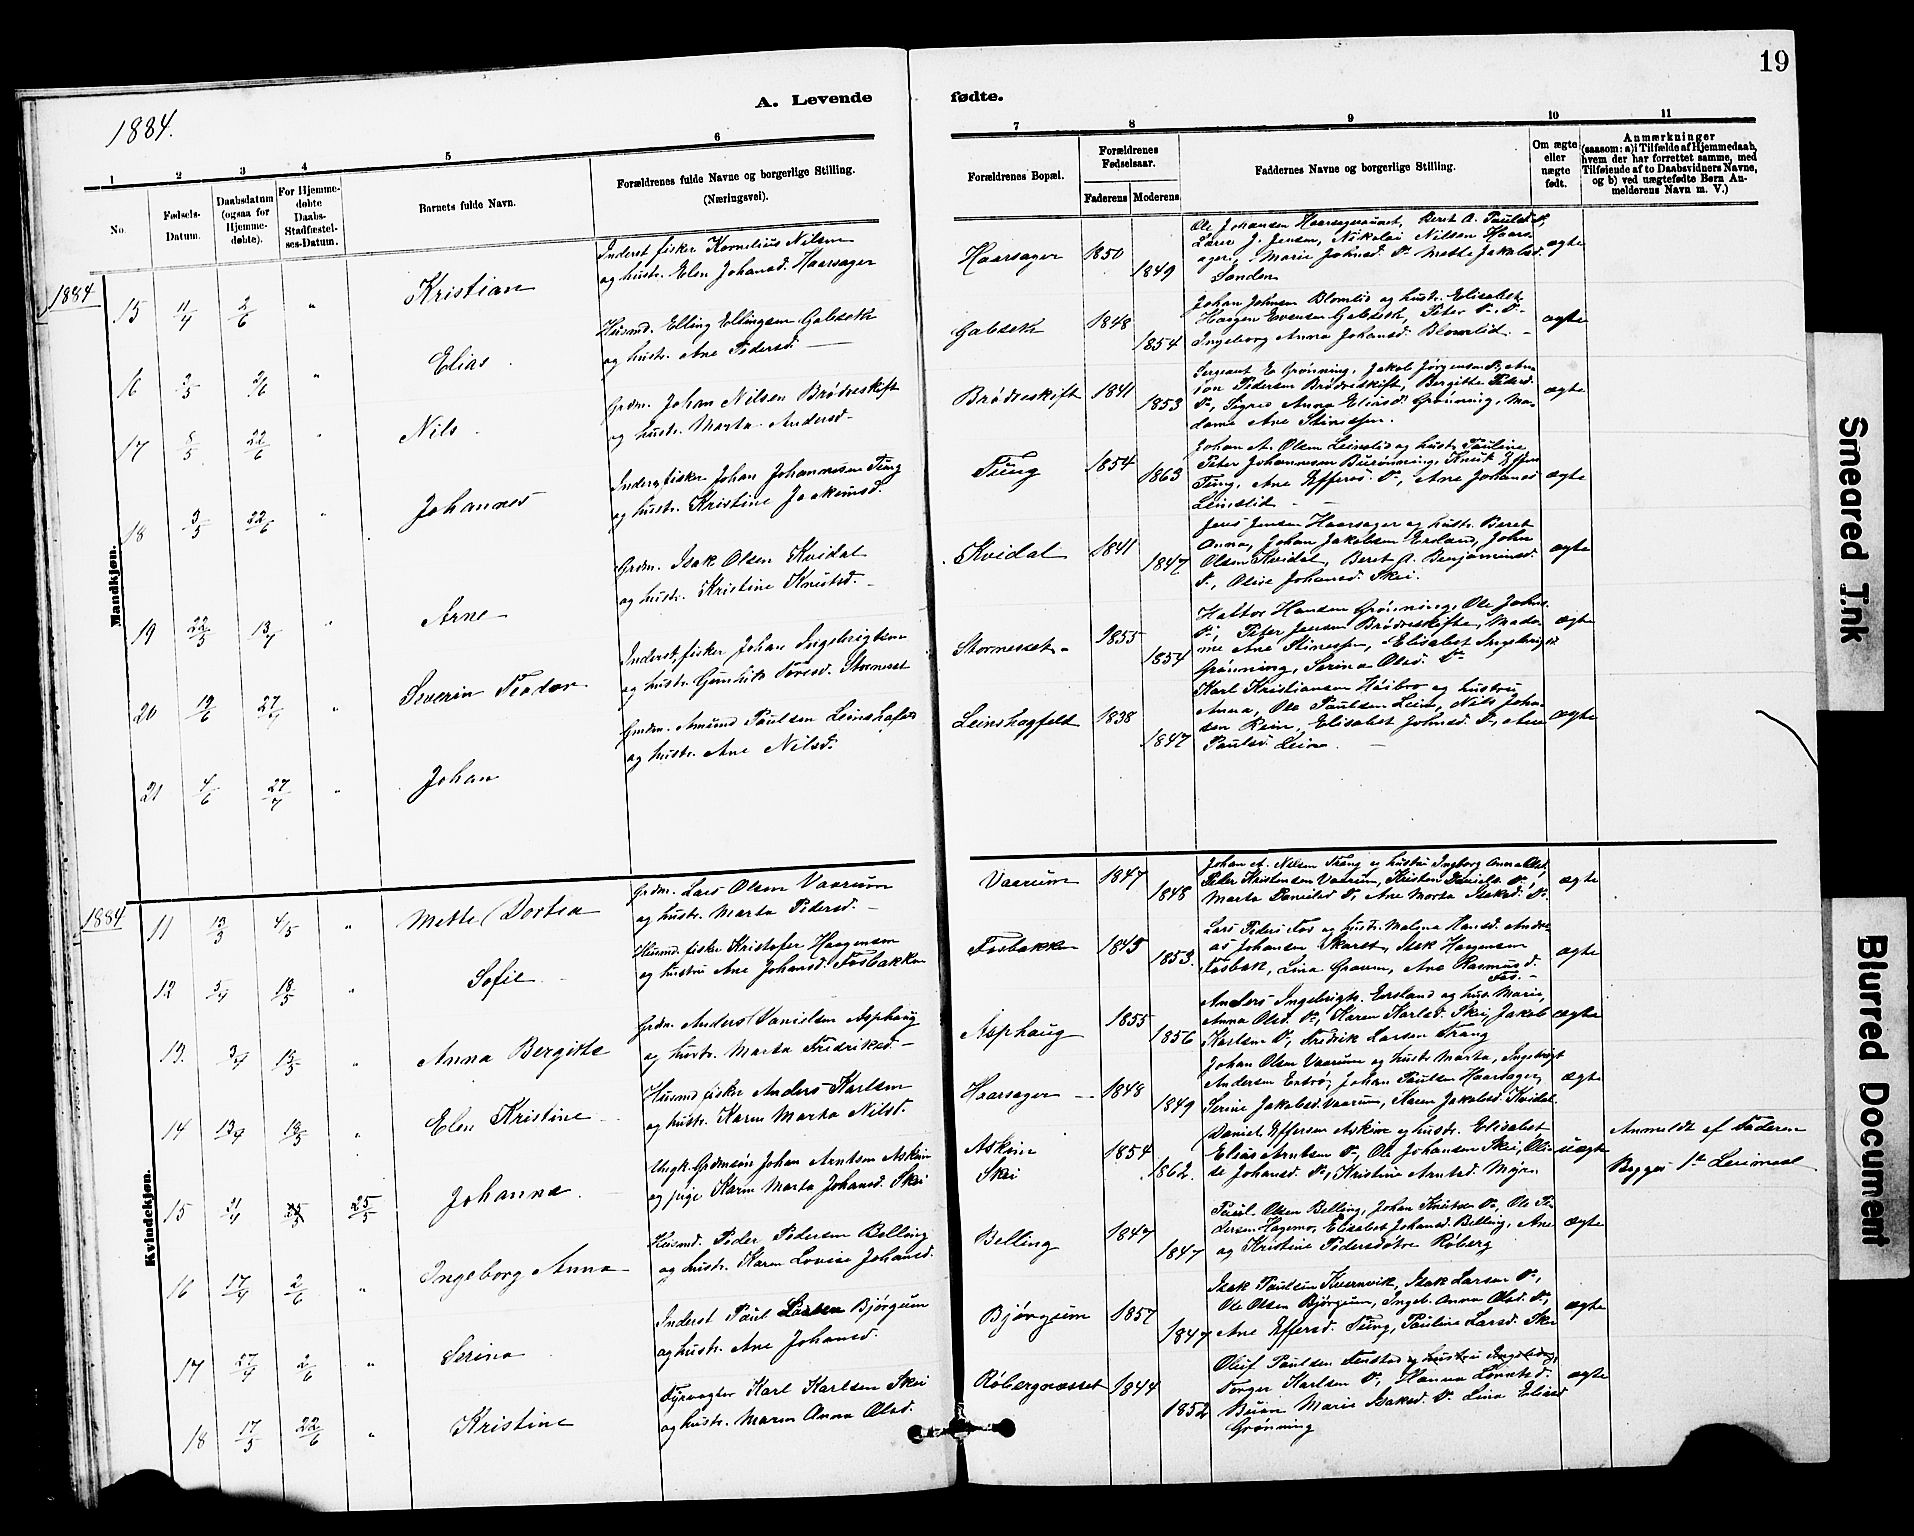 19
A. Levende fødte.
1884.
1 2 3 4 5 6 7 8 9 10 11
No.
Fødsels-Datum.
Daabsdatum (ogsaa for Hjemmedøbte).
For Hjemmedøbte Daabs-Stadfæstelses-Datum.
Barnets fulde Navn.
Forældrenes fulde Navne og borgerlige Stilling. (Næringsvei).
Forældrenes Bopæl.
Forældrenes Fødselsaar.
Faderens Moderens
Faddernes Navne og borgerlige Stilling.
Om ægte eller uægte født.
Anmærkninger
(saasom: a) i Tilfælde af Hjemmedaab, hvem der har forrettet samme, med Tilføiende af to Daabsvidners Navne, og b) ved uægtefødte Børn Anmelderens Navn m. V.)
Mandkjøn.
1884
15 11/4 2/6 " Kristian
Inderst fisker Kornelius Nilsen
og hustr. Elen Johansd. Haarsager
Haarsager 1850 1849
Ole Johansen Haarsagvaunet, Beret A. Paulsd. Ds.,
Lars J. Jensen, Nikolai Nilsen Haars-
ager, Marie Johnsd. Ds. Mette Jakobsd.
Sanden
ægte
16 3/5 2/6 " Elias
Husmd. Elling Ellingsen Gabsek
og hustr. Ane Pedersd.
Gabsek 1848 1854
Johan Johnsen Blomlid og hustr. Elisabet,
Haagen Evensen Gabsesk, Peter P. Ds.
Ingeborg Anna Johansd. Blomlid.
ægte
17 8/5 22/6 " Nils
Grdm. Johan Nilsen Brødreskift
og hustr. Marta Andersd.
Brødreskift 1841 1853
Sergeant E Grønning, Jakob Jørgensen Ds., An-
ton Pedersen Brødreskift, Bergitte Pedersd.
Ds., Sigred Anna Eliasd. Grønning, Ma-
dame Ane Stinessen.
ægte
18 3/5 22/6 " Johannes
Inderst, fisker Johan Johannesen Tung
og hustr. Kristine Joakimsd.
Tung 1854 1863
Johan A. Olsen Leinslid og hustr. Pauline
Peter Johannesen Burønning, Knut Effersen
Tung, Ane Effersd. Ds., Ane Johansd
Leinslid
ægte
19 22/5 13/7 " Arne
Grdm. Isak Olsen Kvidal
og hustr. Kristine Knutsd.
Kvidal 1841 1847
Jens Jensen Haarsager og hustr. Beret
Anna, Johan Jakobsen Ersland, John
Olsen Kvidal, Beret A. Benjaminsd.
Ds., Olise Johansd. Skei.
ægte
20 19/6 27/7 " Severin Teodor
Inderst, fisker Johan Ingebrigtsen
og hustr. Gunhild Toresd. Stormeset
Stormeset 1855 1854
Haltor Hansen Grønning, Ole Johns.
Ds., Peter Jensen Brødreskifte, Mada-
me Ane Stinessen, Elisabet Ingebrigtsd.
Grønning, Serina Olsd. Ds.
ægte
21 4/6 27/7 " Johan
Grdm. Amund Paulsen Leinshagfeld
og hustr. Ane Nilsd.
Leinshagfeld 1838 1847
Karl Kristiansen Høibro og hustru
Anna, Ole Paulsen Lein, Nils Johan-
sen Rein, Elisabet Johnsd. Ds., Ane
Paulsd. Lein.
ægte
Kvindekjøn.
1884
11 13/3 4/5 " Mette Dortea
Grdm. Lars Olsen Vaarum
og hustr. Marta Pedersd.
Vaarum 1847 1848
Johan A. Nilsen Trang og hustru Ingborg Anna Olsd.,
Peter Kristensen Vaarum, Kristen Daniels. Ds.,
Marta Danielsd Ds., Ane Marta Isaksd. Ds.
ægte
12 5/4 18/5 " Sofie
Husmd. fisker Kristofer Haagensen
og hustru Ane Johansd. Fosbakken
Fosbakken 1845 1853.
Lars Peders. Fos og hustr. Malena Hansd. Andre-
as Johansen Skaret, Isak Haagensen
Fosbak, Lina Graven, Ane Rasmusd.
Fos.
ægte
13. 3/4 18/5 " Anna Bergitte
Grdm. Anders Danielsen Asphaug
og hustr. Marta Fredriksd.
Asphaug 1855 1856
Anders Ingebrigts. Eersland og hus. Marie,
Anna Olsd. Ds., Karen Karlsd. Skei, Jakob
Karlsen Ds., Fredrik Larsen Trang
ægte
14 13/4 18/5 " Elen Kristine
Husmd fisker Anders Karlsen
og hustr. Karen Marta Nilsd.
Haarsager 1848 1849
Johan Olsen Vaarum og hustr. Marta, Ingebrigt
Andersen Enbrø, Johan Paulsen Haarsager,
Serine Jakobsd. Vaarum, Karen Jakobsd. Kvidal.
ægte
15 3/4 25/5 25/5 Johanna
Ungk. Grdmsøn Johan Arntsen Askim
og pige Karen Marta Johansd. Skei
Askim
Skei
1854 1862.
Daniel Effersen Askim og hustr. Elisabet
Elias Arntsen Ds., Ole Johansen Skei, Oli-
se Johansd. Ds., Kristine Arntsd. Møje.
uægte
Anmeldt af Faderen
Begges 1te Leiermaal
16 17/4 2/6 " Ingeborg Anna
Husmd. Peder Pedersen Belling
og hustr. Karen Lovise Johansd.
Belling 1847 1847
Paul Olsen Belling, Johan Knutsen Ds., Ole Pe-
dersen Hagemo, Elisabet Johansd. Belling, Ane
og Kristine Pedersdøtre Røberg
ægte
17 27/4 2/6 " Serina
Inderst Paul Larsen Bjørgum
og hustr. Ane Johansd.
Bjørgum 1857 1847
Isak Paulsen Kvernvik, Isak Larsen Ds.,
Ole Olsen Bjørgum, Ingeb. Anna Olsd. Ds.,
Ane Effersd. Tung, Pauline Larsd. Skei
ægte
18 17/5 22/6 " Kristine
Fyrvogter Karl Karlsen Skei
og hustr. Maren Anna Olsd.
Røbergnæsset 1844 1852
Oluf Paulsen Fenstad og hustru Ingeborg,
Torger Karlsen Ds., Hanna Lorntsd.
Buan Marie Isaksd. Ds. Lina Eliasd
Grønning
ægte
Smeared Ink
Blurred Document